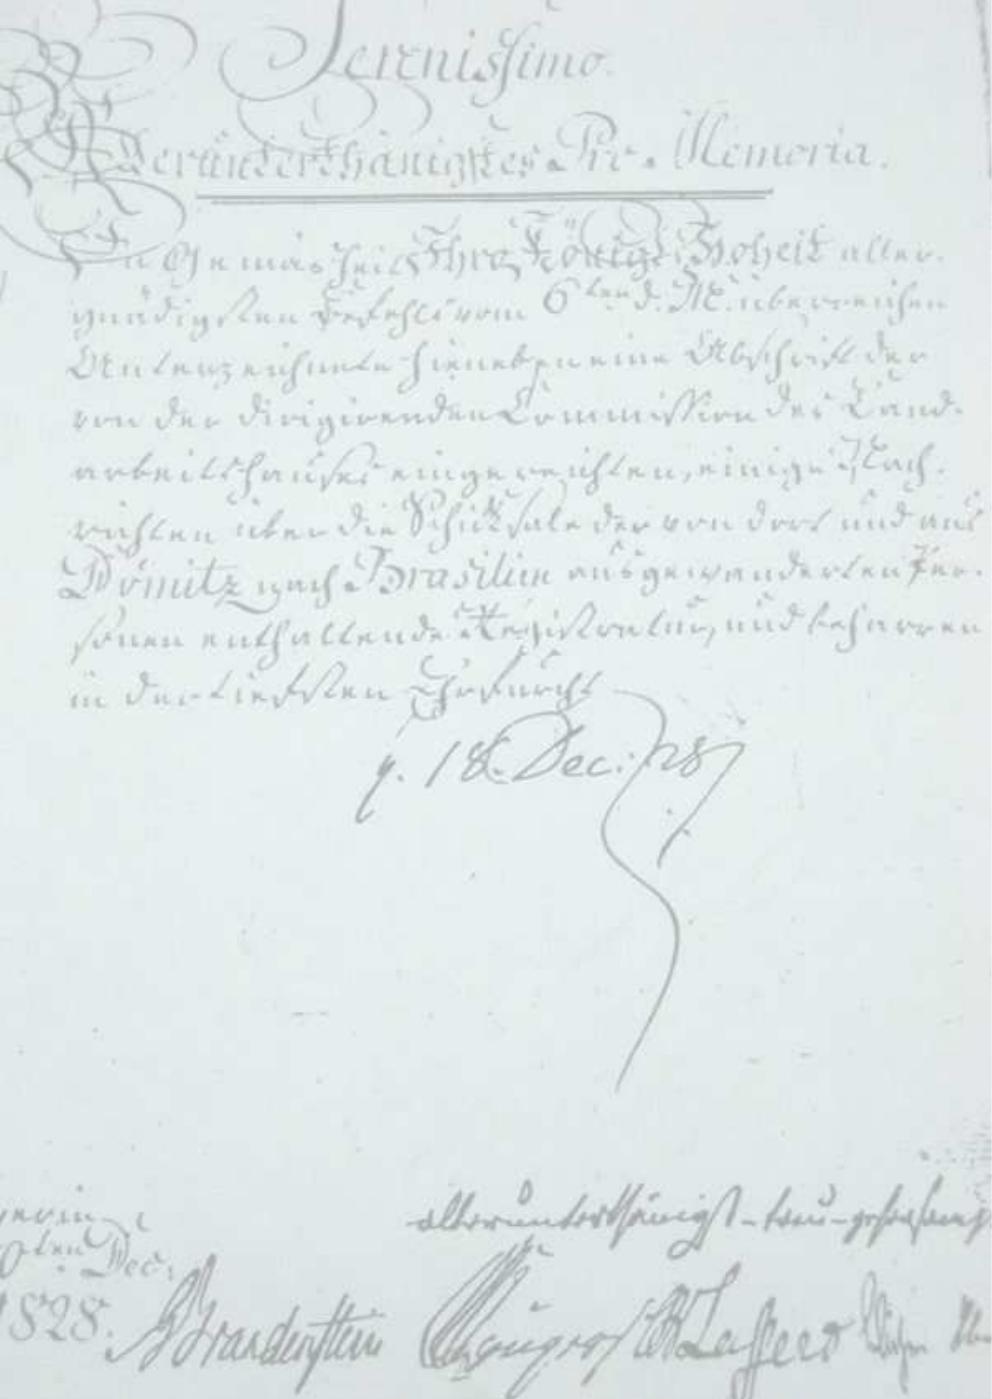 Serenissimo.
Alleruntertthänigstes Pro Memoria.
In Gemäsheit Ihro Königl: Hoheit aller-
gnädigsten Befehls vom 6ten d. M. überreichen
Unterzeichnete hieneben eine Abschrift der
von der dirigirenden Commission des Land-
arbeitshauses eingereichten, einige Nach-
richten über die Schicksale der von dort und aus
Dömitz nach Brasilien ausgewanderten Per-
sonen enthaltende Registratur, und beharren
in der tiefsten Ehrfurcht
18. Dec: 28
allerunterthänigst-treu-gehorsamst
werin
ten Dec.
1828.
Brandenstein